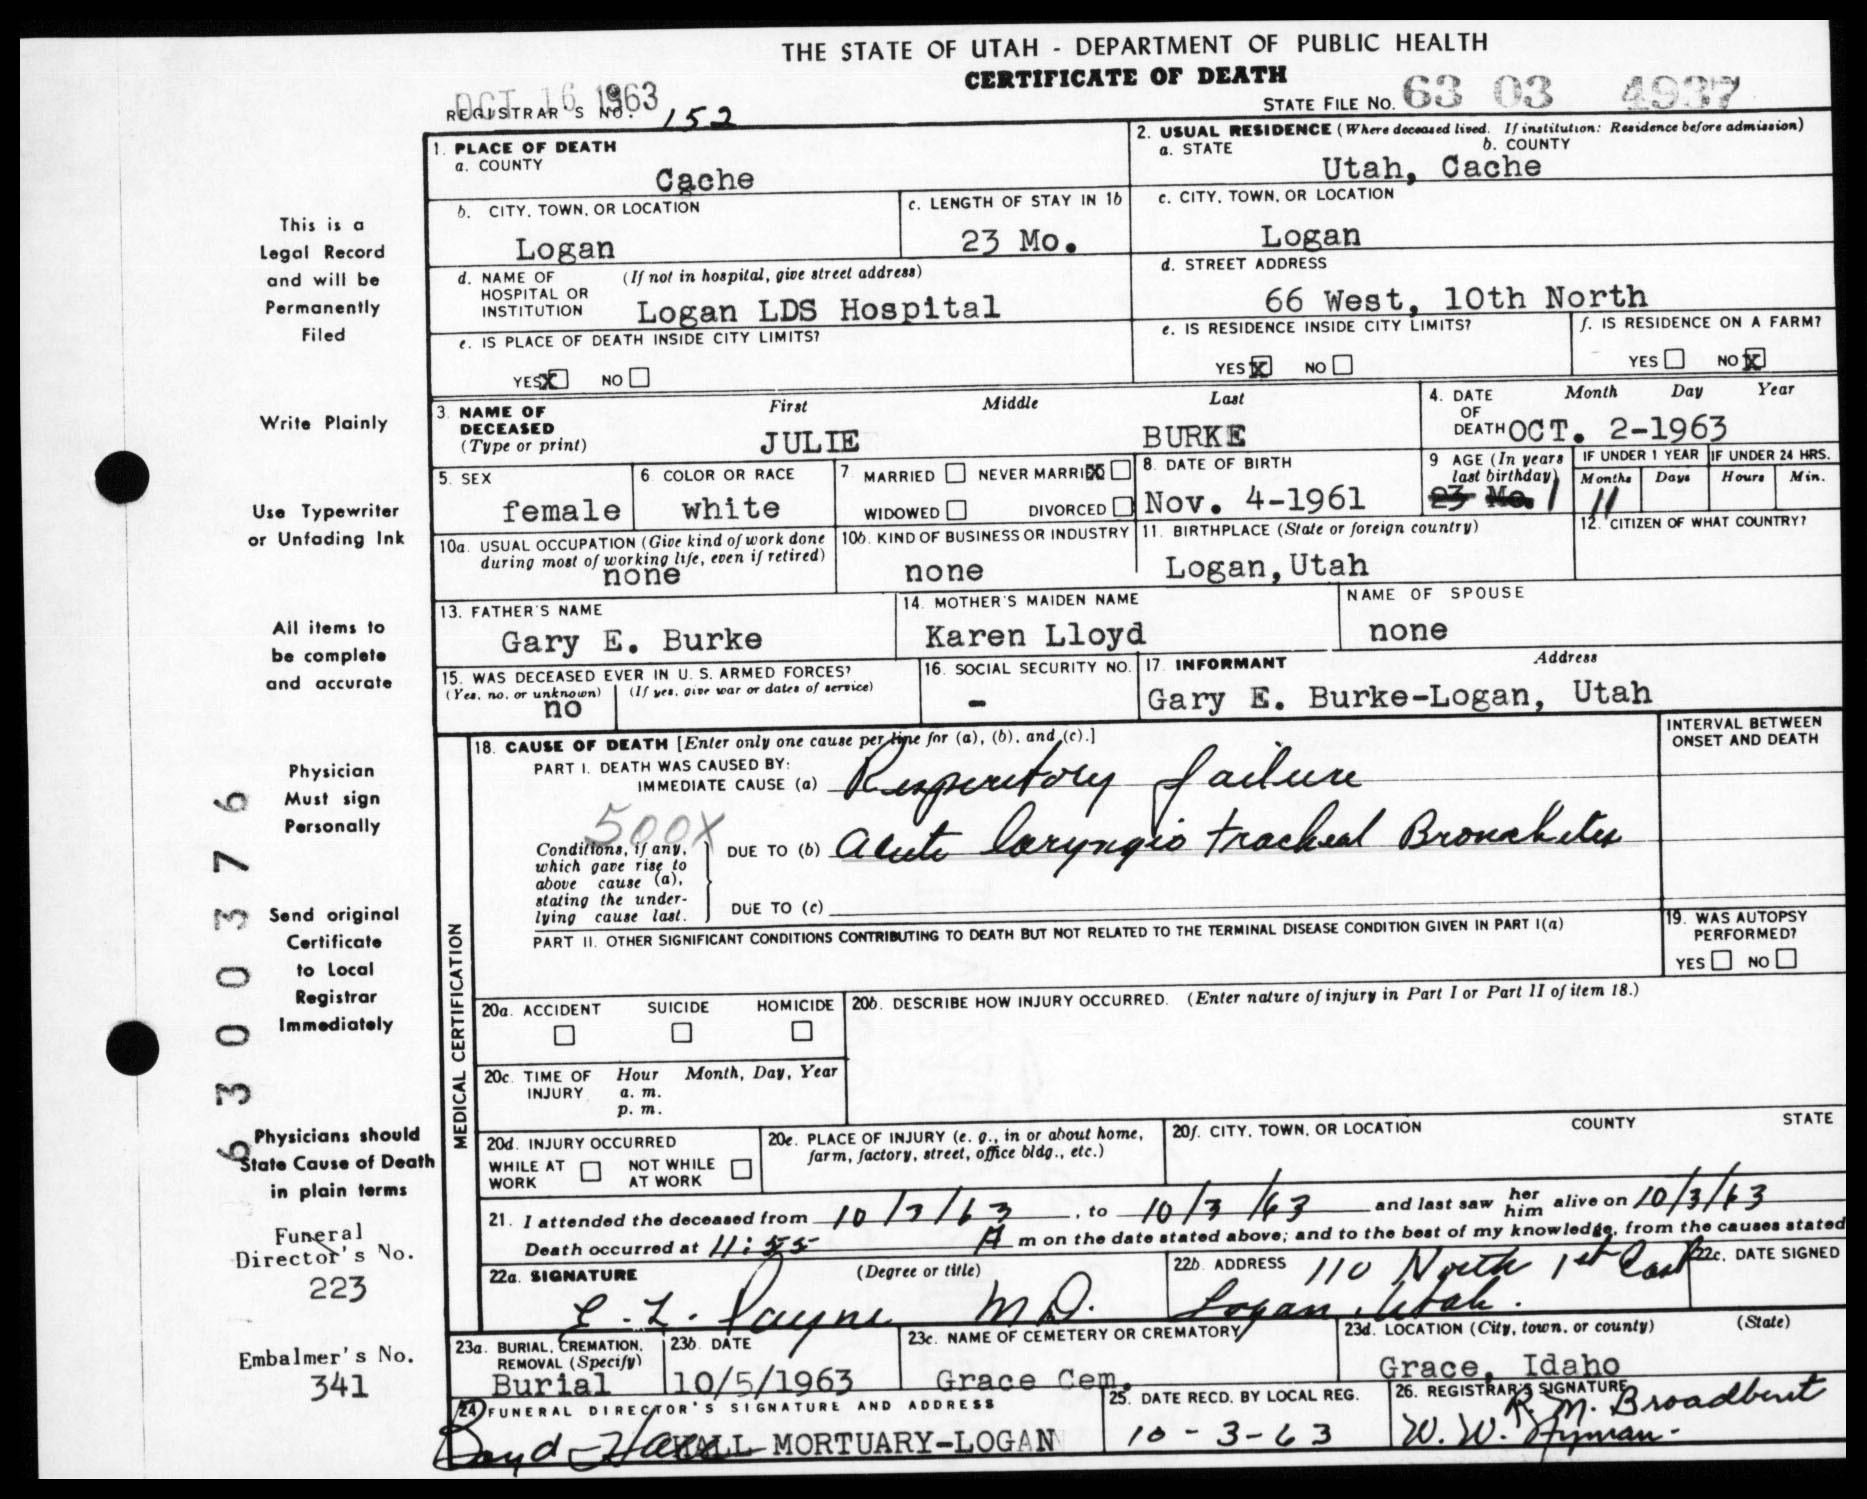 THE STATE OF UTAH - DEPARTMENT OF PUBLIC HEALTH
CERTIFICATE OF DEATH
OCT 16 1963
REGISTRAR'S NO. 152
STATE FILE NO. 63 03 4937
1. PLACE OF DEATH
a. COUNTY
Cache
2. USUAL RESIDENCE (Where deceased lived. If institution: Residence before admission)
a. STATE b. COUNTY
Utah, Cache
b. CITY, TOWN, OR LOCATION
Logan
c. LENGTH OF STAY IN 1b
23 Mo.
c. CITY, TOWN, OR LOCATION
Logan
d. NAME OF HOSPITAL OR INSTITUTION (If not in hospital, give street address)
Logan LDS Hospital
d. STREET ADDRESS
66 West, 10th North
e. IS PLACE OF DEATH INSIDE CITY LIMITS?
YES X NO
e. IS RESIDENCE INSIDE CITY LIMITS?
YES X NO
f. IS RESIDENCE ON A FARM?
YES NO X
3. NAME OF DECEASED (Type or print)
First Middle Last
JULIE BURKE
4. DATE OF DEATH Month Day Year
OCT. 2-1963
5. SEX
female
6. COLOR OR RACE
white
7 MARRIED NEVER MARRIED X
WIDOWED DIVORCED
8. DATE OF BIRTH
Nov. 4-1961
9 AGE (In years last birthday)
23 Mo. 1
IF UNDER 1 YEAR
Months Days
11
IF UNDER 24 HRS.
Hours Min.
10a. USUAL OCCUPATION (Give kind of work done during most of working life, even if retired)
none
10b. KIND OF BUSINESS OR INDUSTRY
none
11. BIRTHPLACE (State or foreign country)
Logan, Utah
12. CITIZEN OF WHAT COUNTRY?
13. FATHER'S NAME
Gary E. Burke
14. MOTHER'S MAIDEN NAME
Karen Lloyd
NAME OF SPOUSE
none
15. WAS DECEASED EVER IN U. S. ARMED FORCES?
(Yes, no, or unknown) (If yes, give war or dates of service)
no
16. SOCIAL SECURITY NO.
-
17. INFORMANT Address
Gary E. Burke-Logan, Utah
MEDICAL CERTIFICATION
18. CAUSE OF DEATH [Enter only one cause per line for (a), (b), and (c).]
INTERVAL BETWEEN ONSET AND DEATH
PART I. DEATH WAS CAUSED BY:
IMMEDIATE CAUSE (a) Resperitory failure
500X
Conditions, if any, which gave rise to above cause (a), stating the underlying cause last.
DUE TO (b) Acute laryngio tracheal Bronchites
DUE TO (c)
PART II. OTHER SIGNIFICANT CONDITIONS CONTRIBUTING TO DEATH BUT NOT RELATED TO THE TERMINAL DISEASE CONDITION GIVEN IN PART I(a)
19. WAS AUTOPSY PERFORMED?
YES NO
20a. ACCIDENT SUICIDE HOMICIDE
20b. DESCRIBE HOW INJURY OCCURRED. (Enter nature of injury in Part I or Part II of item 18.)
20c. TIME OF INJURY Hour Month, Day, Year
a. m.
p. m.
20d. INJURY OCCURRED
WHILE AT WORK NOT WHILE AT WORK
20e. PLACE OF INJURY (e. g., in or about home, farm, factory, street, office bldg., etc.)
20f. CITY, TOWN, OR LOCATION COUNTY STATE
21. I attended the deceased from 10/3/63, to 10/3/63 and last saw her him alive on 10/3/63
Death occurred at 11:55 A m on the date stated above; and to the best of my knowledge, from the causes stated
22a. SIGNATURE (Degree or title)
E. L. Payne M.D.
22b. ADDRESS 110 North 1st East
Logan, Utah.
22c. DATE SIGNED
23a. BURIAL, CREMATION, REMOVAL (Specify)
Burial
23b. DATE
10/5/1963
23c. NAME OF CEMETERY OR CREMATORY
Grace Cem.
23d. LOCATION (City, town, or county) (State)
Grace, Idaho
24 FUNERAL DIRECTOR'S SIGNATURE AND ADDRESS
Boyd Hall HALL MORTUARY-LOGAN
25. DATE RECD. BY LOCAL REG.
10-3-63
26. REGISTRAR'S SIGNATURE
R. M. Broadbent
W. W.
This is a
Legal Record
and will be
Permanently
Filed
Write Plainly
Use Typewriter
or Unfading Ink
All items to
be complete
and accurate
Physician
Must sign
Personally
Send original
Certificate
to Local
Registrar
Immediately
Physicians should
State Cause of Death
in plain terms
Funeral
Director's No.
223
Embalmer's No.
341
6300376